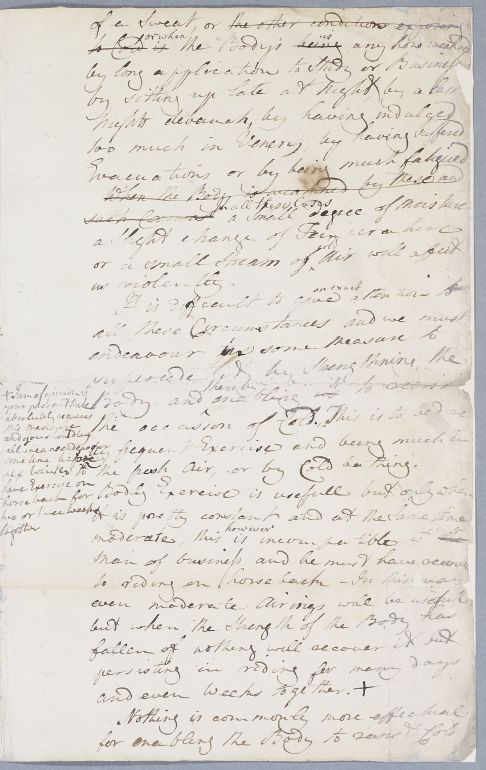 of a Sweat, or the other condition exposed
to Cold is or when the Body's being is any how weakened
by long application to Study or Business
by sitting up late at Night, by a last
Night's debauch, by having indulged
too much in Venery, by having suffered
Evacuations or by being much fatigued
When the Body is weakened by these and
such Causes in all these cases a small degree of moisture
a slight change of Temperature
or a small stream of cold Air will affect
us violently.
It is difficult to give an exact attention to
all these Circumstances and we must
endeavour in some measure to
supersede it by strengthning the
Body and thereby enabling it to resist
the occasion of Cold. This is to be done
by frequent Exercise and being much in
the fresh Air, or by Cold bathing.
Bodily Exercise is usefull but only when
it is pretty constant and at the same time
moderate, this however is incompatible with the
man of business and he must have recourse
to riding on horseback - In this way
even moderate Airings will be usefull
but when the Strength of the Body has
fallen off nothing will recover it but
persisting in riding for many days
and even weeks together. +
Nothing is commonly more effectual
for enabling the Body to resist Cold
+ I am of opinion
your present State
absolutely requires
this measure
and you should by
all means endeavour
some time before
next Winter to
have Exercise on
horseback for
two or three weeks
together